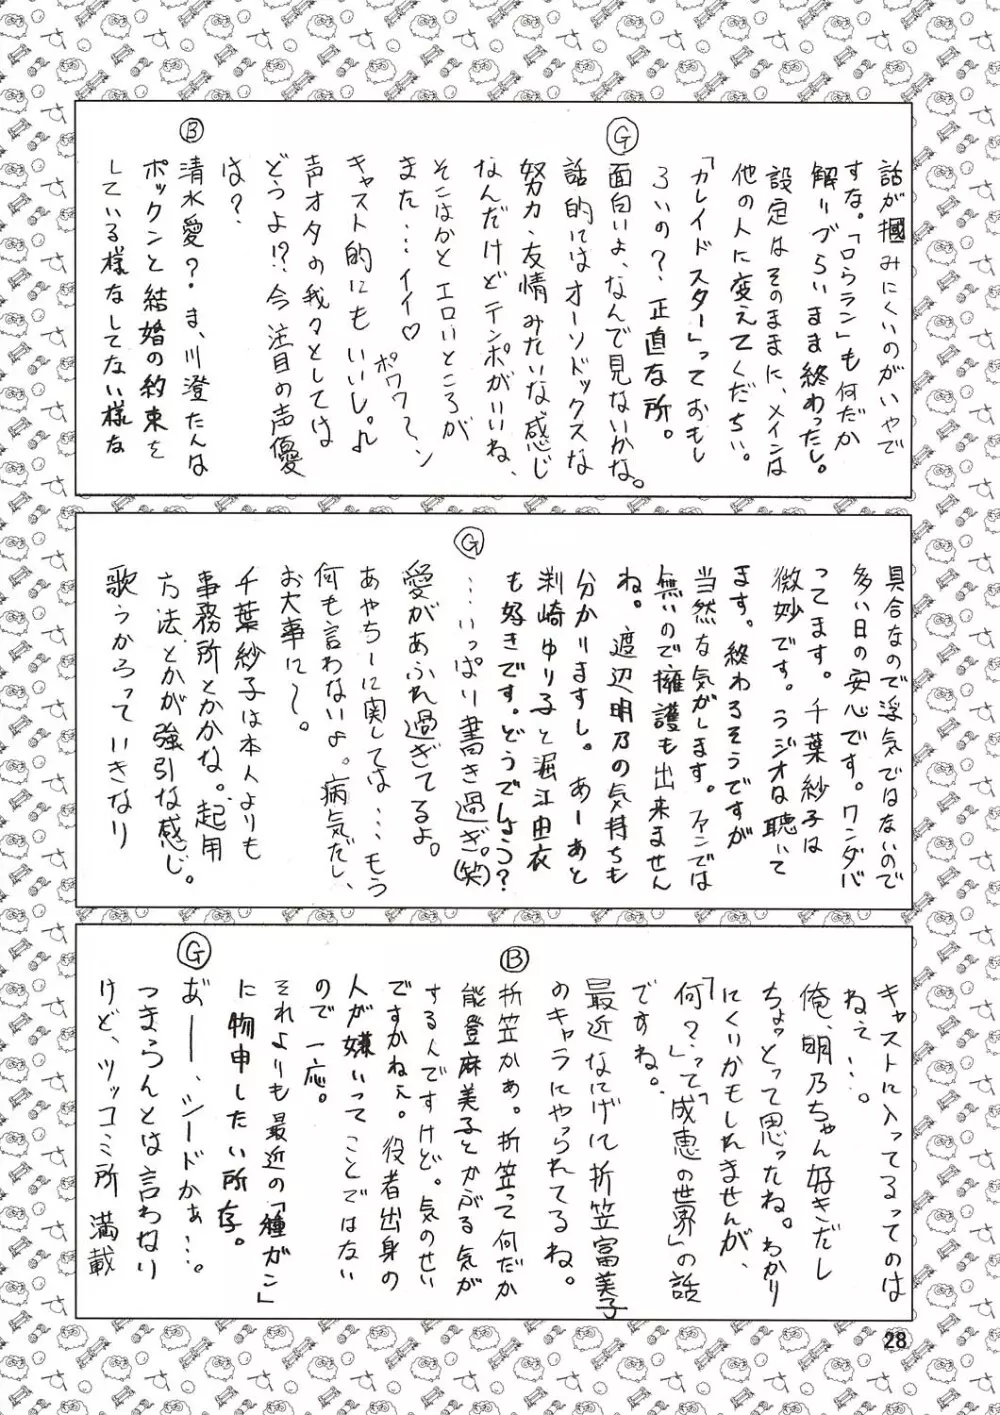 話が掴みにくいのがいやで
すな。「ロラン」も何だか
解りづらいまま終わったし。
設定はそのままに、メインは
他の人に変えてくだちい。
「カレイドスター」っておもし
ろいの？正直な所。
Ⓖ
面白いよ、なんで見ないかな。
話的にはオーソドックスな
努力・友情みたいな感じ
なんだけどテンポがいいね、
そこはかとエロいところが
また…イイ♡
ポワワ～ン
キャスト的にもいいし。♪
声オタの我々としては
どうよ！？今注目の声優
は？
Ⓑ
清水愛？ま、川澄たんは
ボックンと結婚の約束を
している様なしてない様な
具合なので浮気ではないので
多い日の安心です。ワンダバ
ってます。千葉紗子は
微妙です。ラジオは聴いて
ます。終わるそうですが
当然な気がします。ファンでは
無いので擁護も出来ません
ね。渡辺明乃の気持ちも
分かりますし。あーあと
刹崎ゆり子と堀江由衣
も好きです。どうでしょう？
Ⓖ
…いっぱい書き過ぎ。(笑)
愛があふれ過ぎてるよ。
あやちーに関しては…もう
何も言わないよ。病気だし、
お大事に～。
千葉紗子は本人よりも
事務所とかかな。起用
方法とかが強引な感じ。
歌うからっていきなり
キャストに入ってるってのは
ねぇ…。
俺、明乃ちゃん好きだし
ちょっとって思ったね。わかり
にくいかもしれませんが、
「何？」って「成恵の世界」の話
ですね。
最近なにげに折笠富美子
のキャラにやられてるね。
Ⓑ
折笠かぁ。折笠って何だか
能登麻美子とかぶる気が
するんですけど。気のせい
ですかねぇ。役者出身の
人が嫌いってことではない
ので一応。
それよりも最近の「種ガン」
に物申したい所存。
Ⓖ
あ゛ーー、シードかぁ…。
つまらんとは言わない
けど、ツッコミ所満載
28